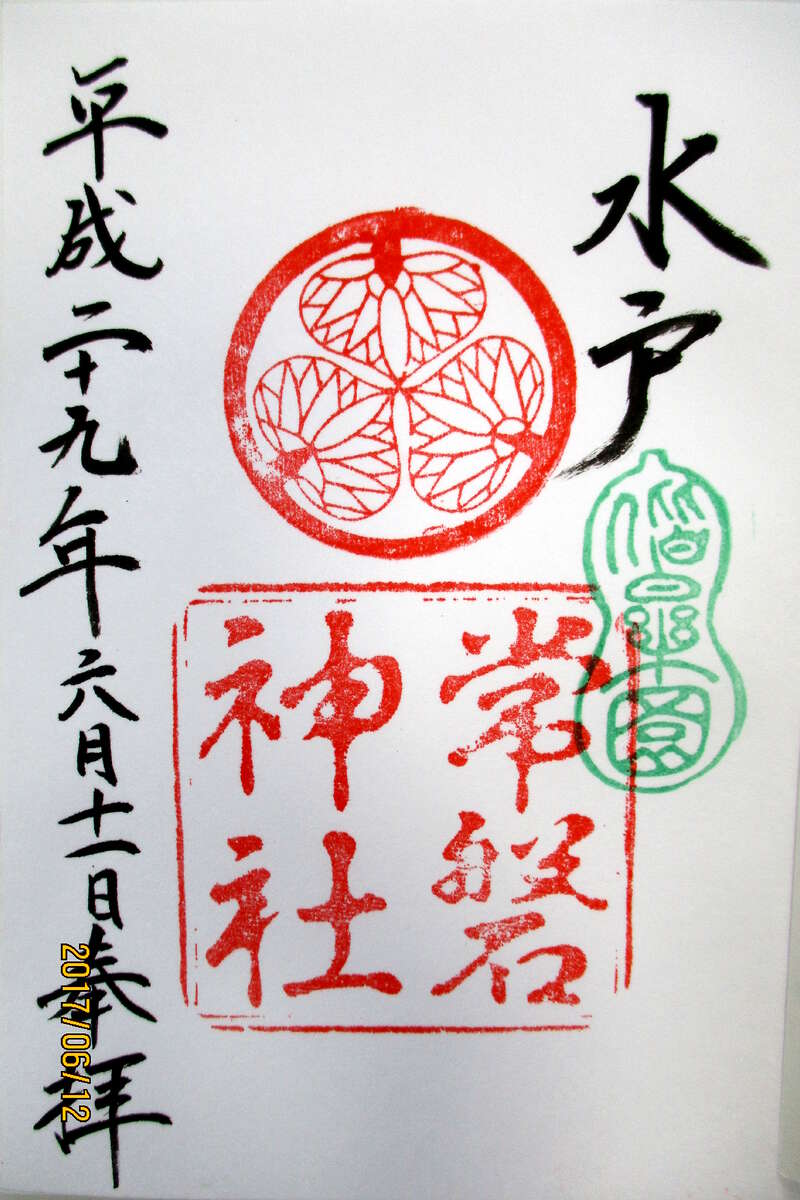 水戸
偕楽園
常磐
神社
平成二十九年六月十一日奉拝
2017/06/12